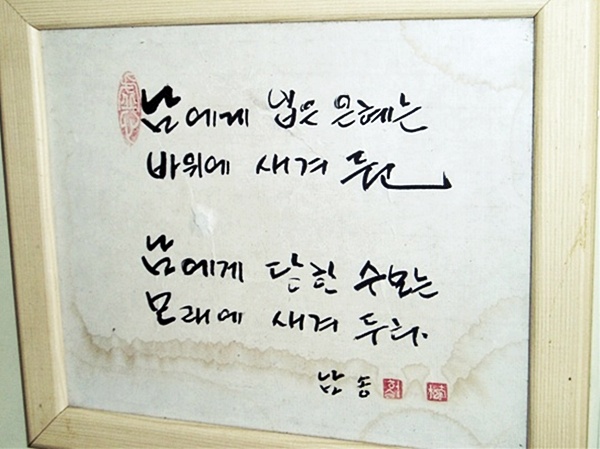 남에게 입은 은혜는
바위에 새겨 두고
남에게 당한 수모는
모래에 새겨 두라.
남송